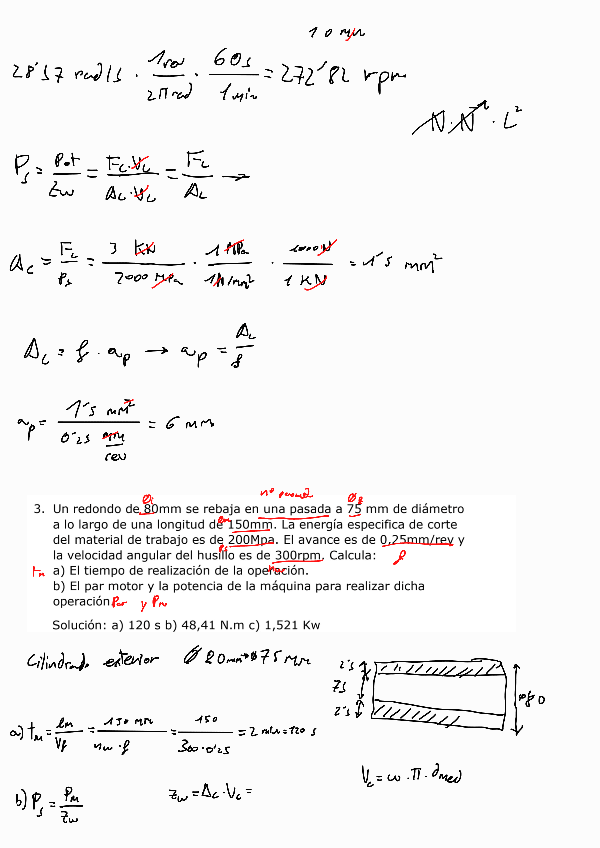 10 min
28'57 rad/s · 1 rev / 2π rad · 60s / 1 min = 272'82 rpm
N · N⁻¹ · L²
Ps = Pot / Zw = Fc·Vc / Ac·Vc = Fc / Ac →
Ac = Fc / Ps = 3 KN / 2000 MPa · 1 MPa / 1N/mm² · 1000N / 1 KN = 1'5 mm²
Ac = f · ap → ap = Ac / f
ap = 1'5 mm² / 0'25 mm/rev = 6 mm
3. Un redondo de 80mm se rebaja en una pasada a 75 mm de diámetro
a lo largo de una longitud de 150mm. La energía especifica de corte
del material de trabajo es de 200Mpa. El avance es de 0,25mm/rev y
la velocidad angular del husillo es de 300rpm. Calcula:
a) El tiempo de realización de la operación.
b) El par motor y la potencia de la máquina para realizar dicha
operación Par y Pm
Solución: a) 120 s b) 48,41 N.m c) 1,521 Kw
Cilindrado exterior Ø 80mm → Ø 75 mm
2'5
75
2'5
Ø80
a) tm = lm / Vf = 150 mm / nw · f = 150 / 300·0'25 = 2 min = 120 s
Vc = ω · π · dmed
b) Ps = Pm / Zw
Zw = Ac · Vc =